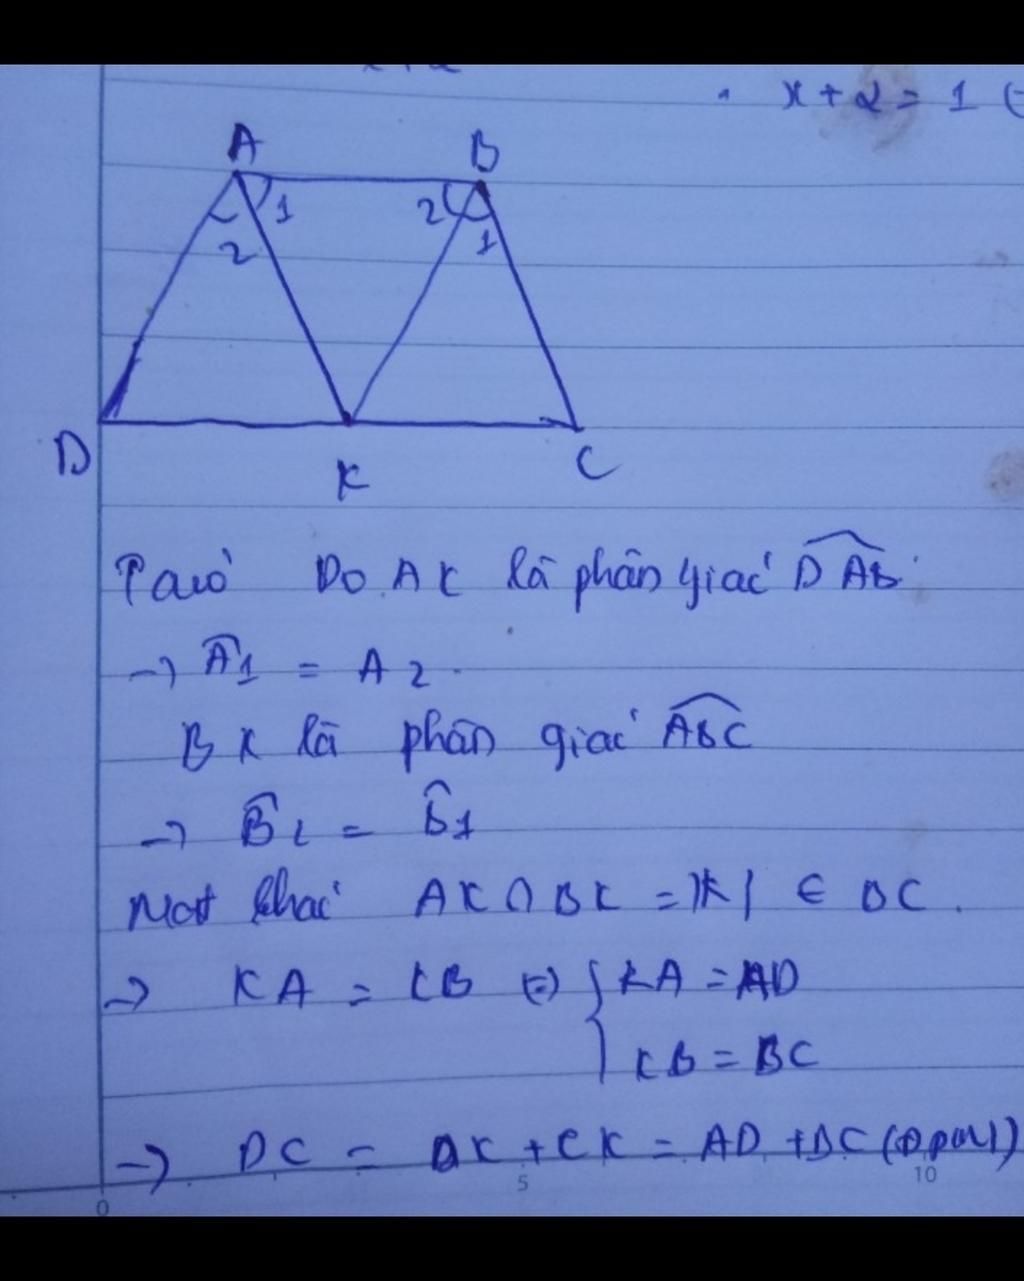 x + 2 = 1 (
A
B
1
2
2
1
D
K
C
Ta có Do AK là phân giác DAB
→ A1 = A2
BK là phân giác ABC
→ B2 = B1
Mặt khác AK ∩ BK = {K} ∈ DC.
→ KA = KB (=) { KA = AD
KB = BC
→ DC = DK + CK = AD + BC (Đpcm)
0 5 10